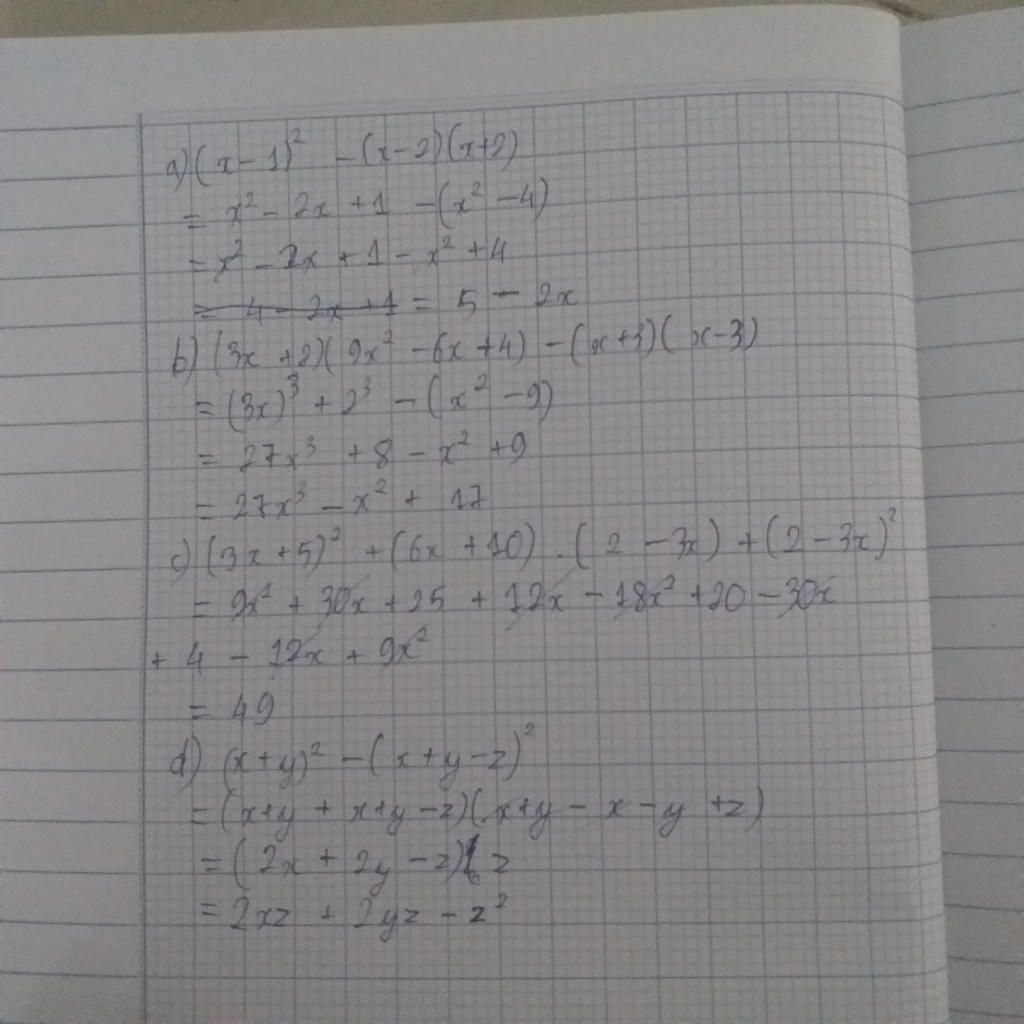 a) (x-1)² - (x-2)(x+2)
= x² - 2x + 1 - (x² - 4)
= x² - 2x + 1 - x² + 4
= 4 - 2x + 1 = 5 - 2x
b) (3x + 2)(9x² - 6x + 4) - (x+3)(x-3)
= (3x)³ + 2³ - (x² - 9)
= 27x³ + 8 - x² + 9
= 27x³ - x² + 17
c) (3x + 5)² + (6x + 10) . (2 - 3x) + (2 - 3x)²
= 9x² + 30x + 25 + 12x - 18x² + 20 - 30x
+ 4 - 12x + 9x²
= 49
d) (x+y)² - (x+y-z)²
= (x+y + x+y-z)(x+y - x - y + z)
= (2x + 2y - z) z
= 2xz + 2yz - z²